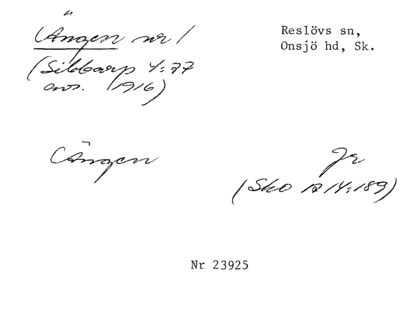 Ängen nr 1
Reslövs sn,
Onsjö hd, Sk.
(Sibbarp 4:77
avs. 1916)
Ängen
Jr
(Sko A 14:189)
Nr 23925